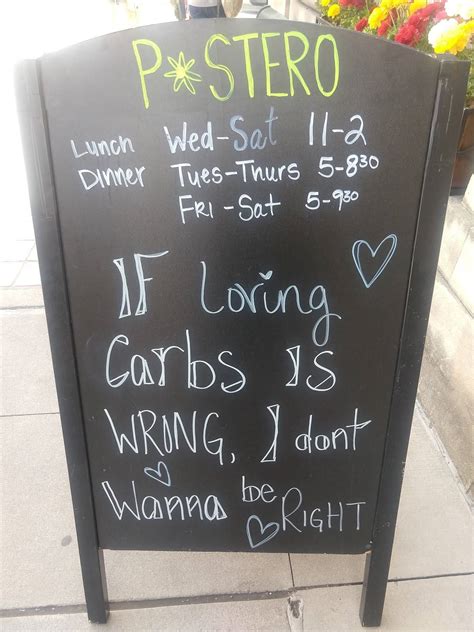 P*STERO
Lunch Wed-Sat 11-2
Dinner Tues-Thurs 5-8:30
Fri-Sat 5-9:30
IF Loving
Carbs Is
WRONG, I dont
Wanna be RIGHT